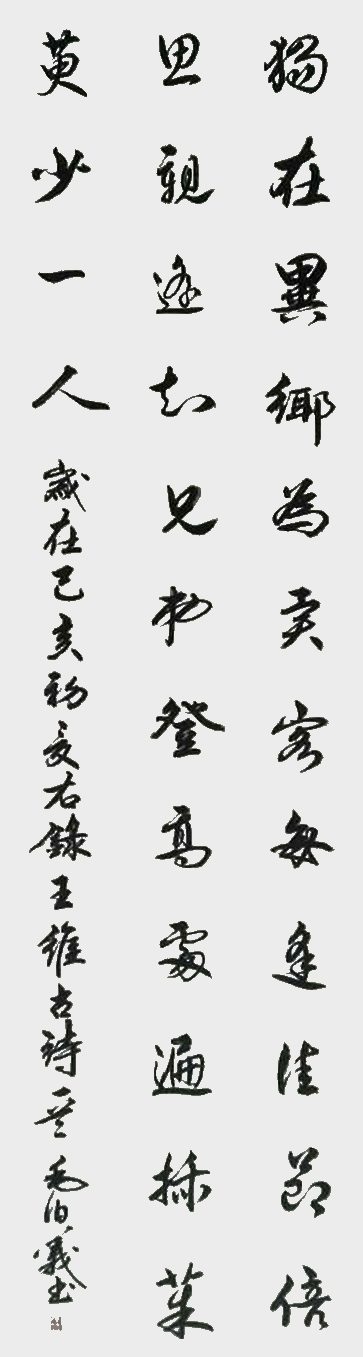 獨在異鄉為異客每逢佳節倍
思親遙知兄弟登高處遍插茱
萸少一人歲在己亥初夏右錄王維古詩一首毛伯義書